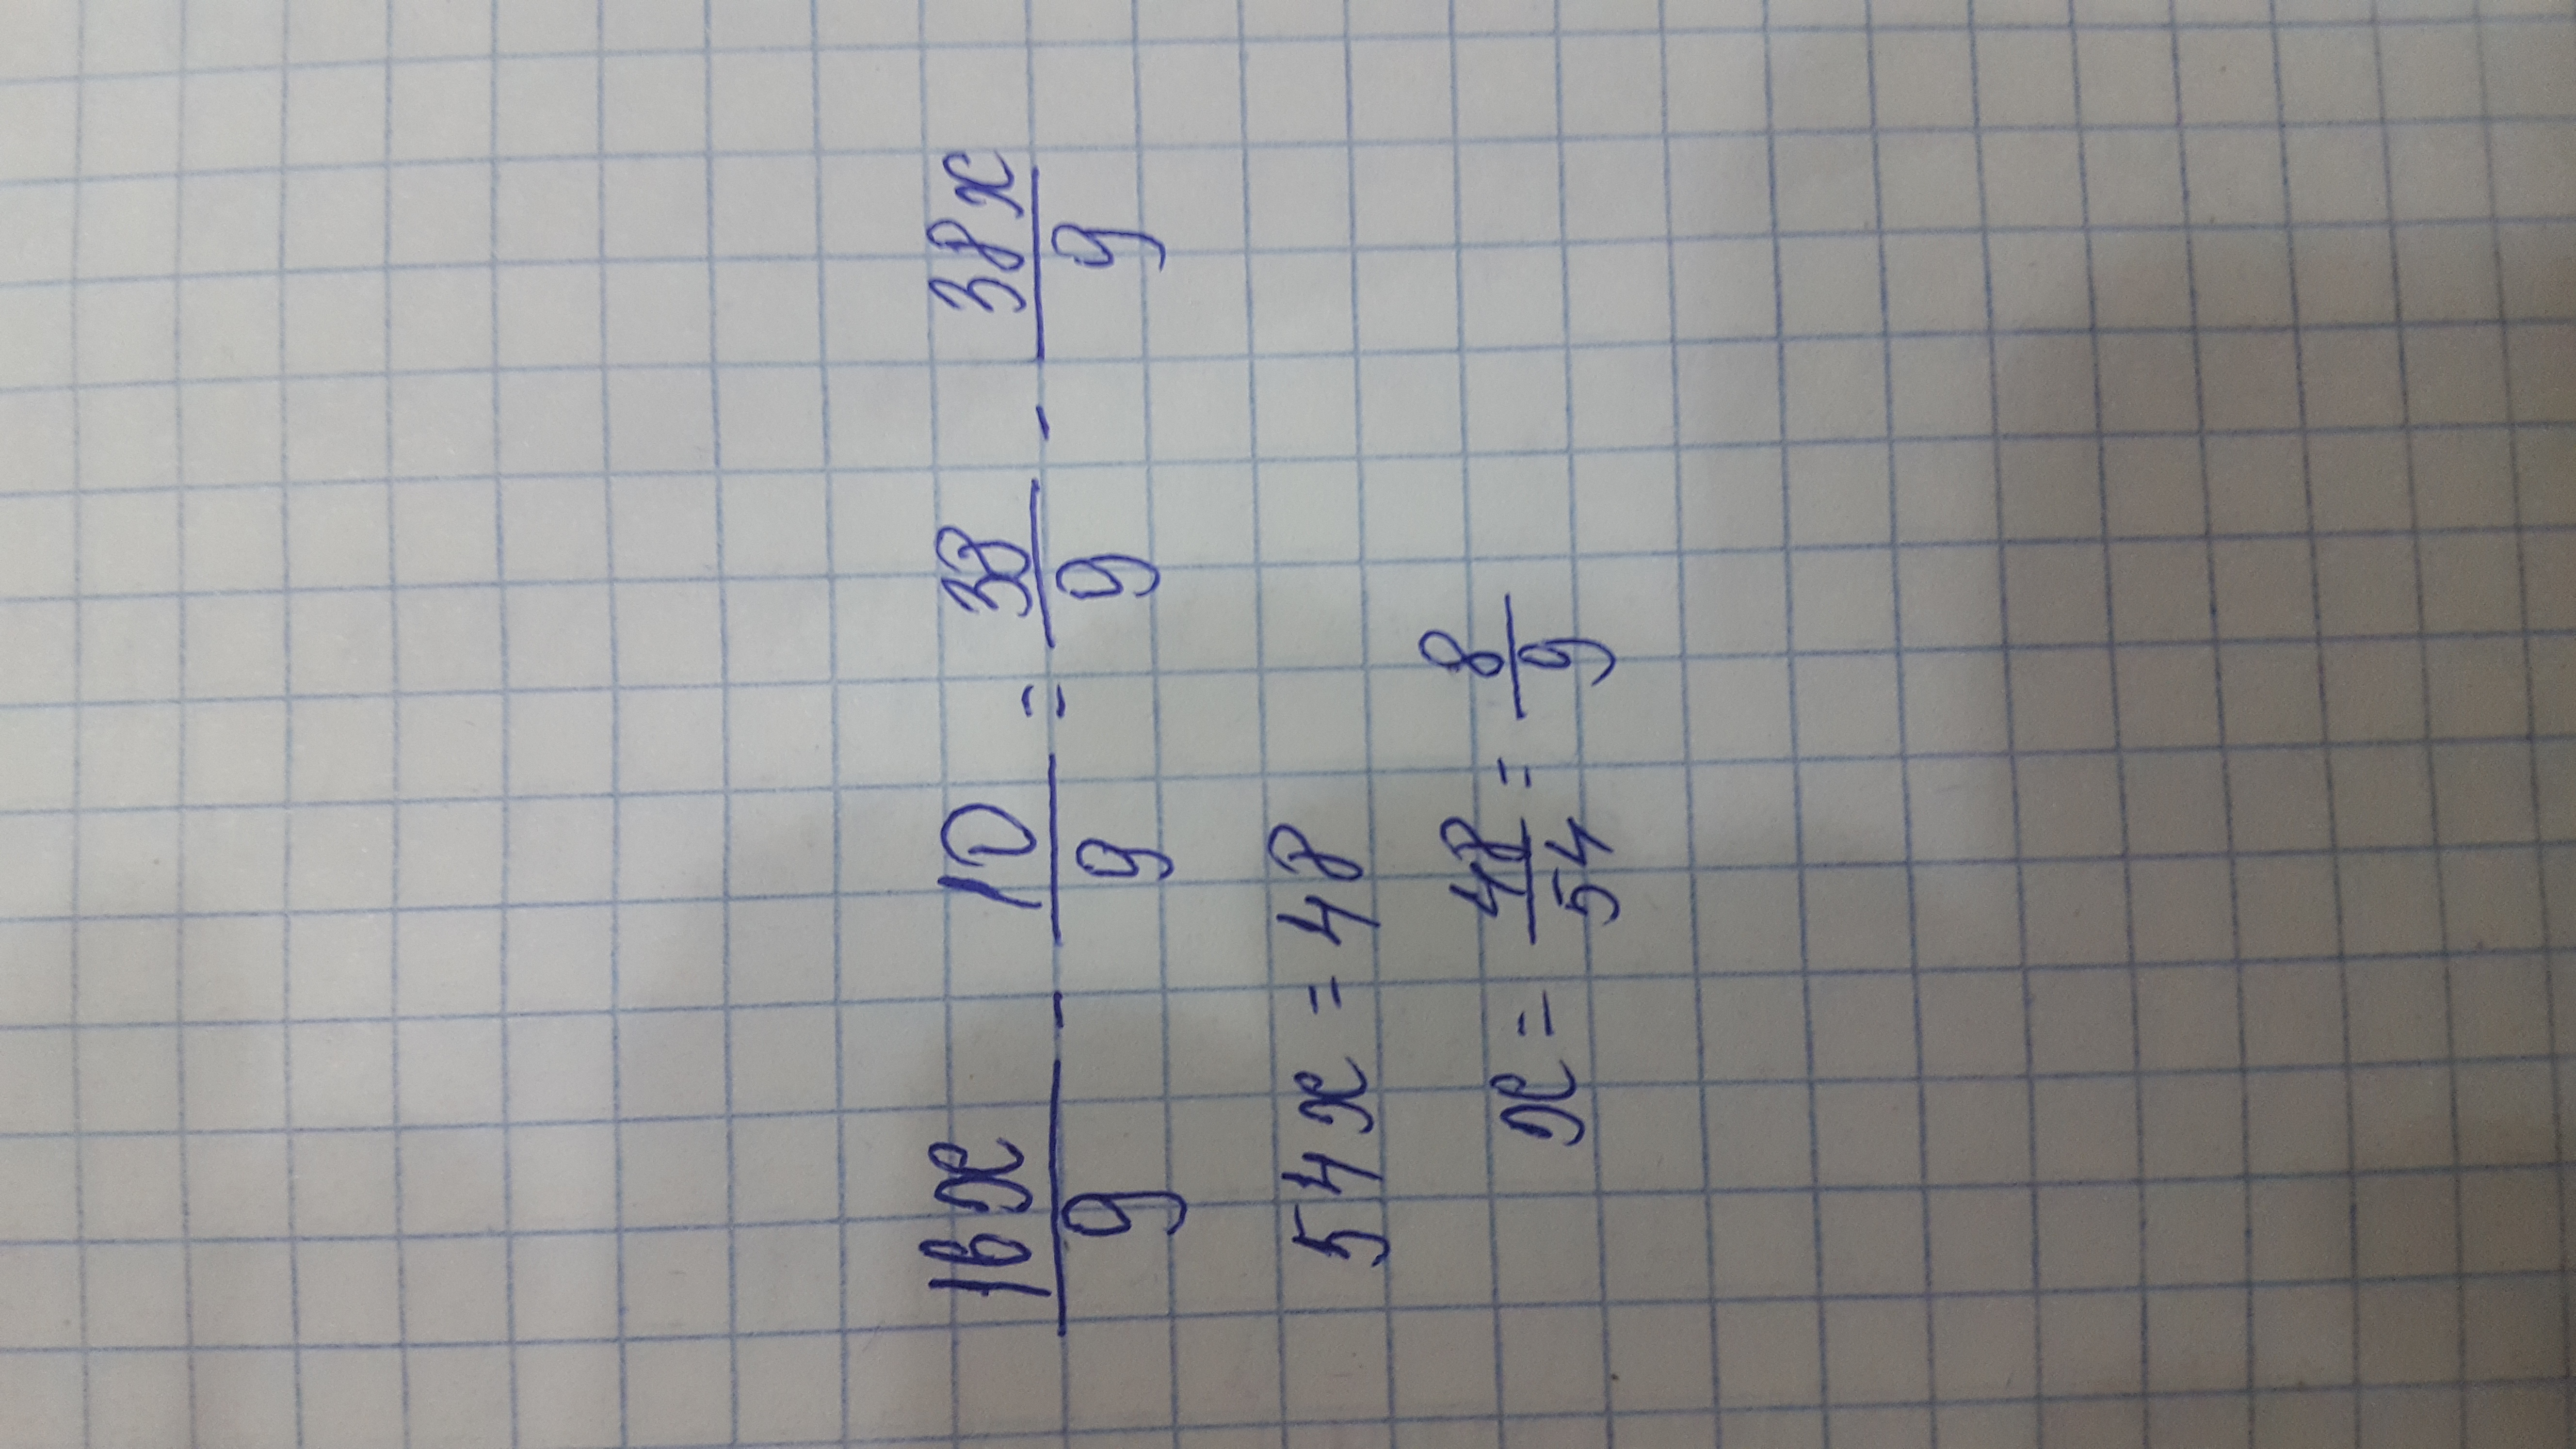 16x/9 - 10/9 = 38/9 - 38x/9
54x = 48
x = 48/54 = 8/9